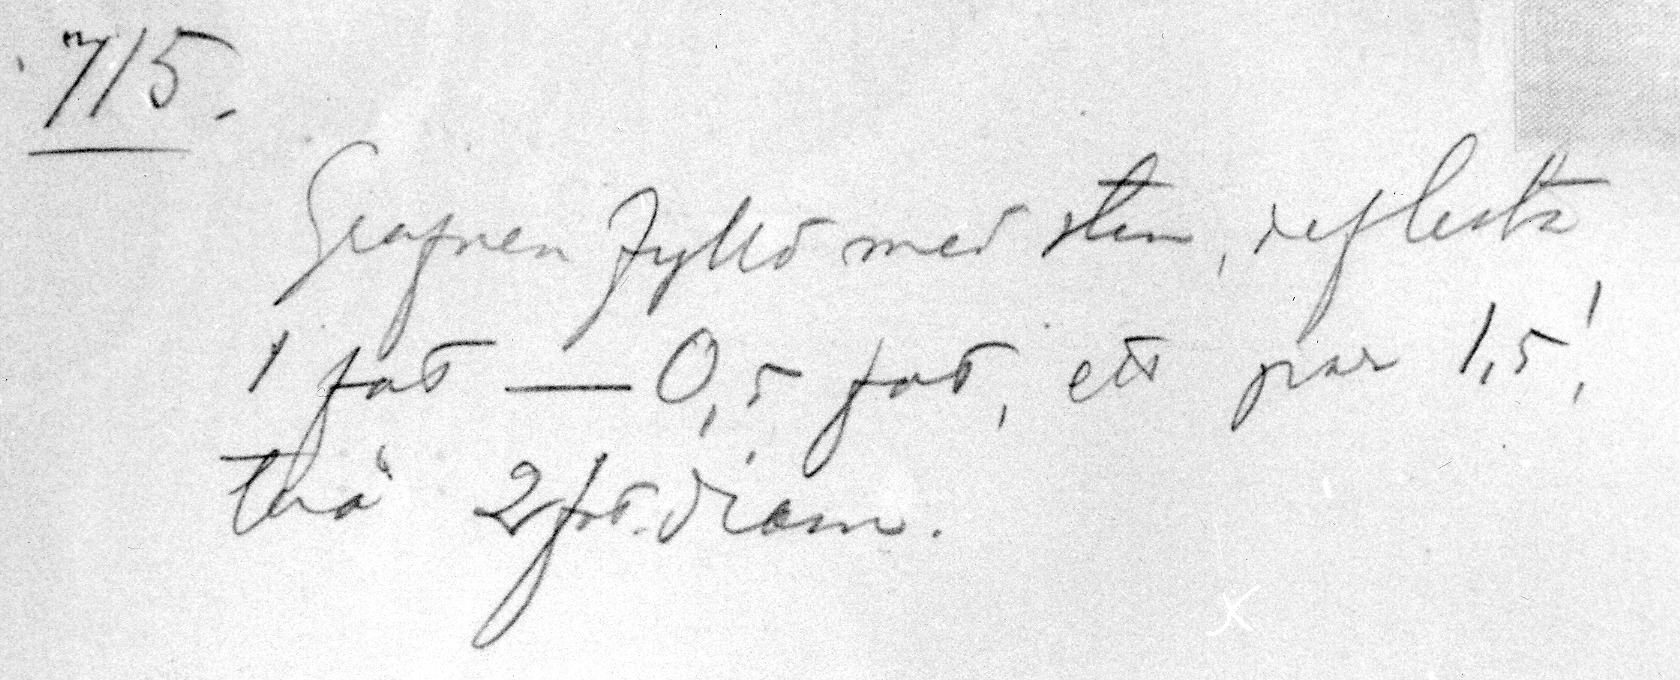 715.
Grafven fylld med sten, de flesta
1 fot — 0,5 fot, ett par 1,5',
två 2 fot. diam.